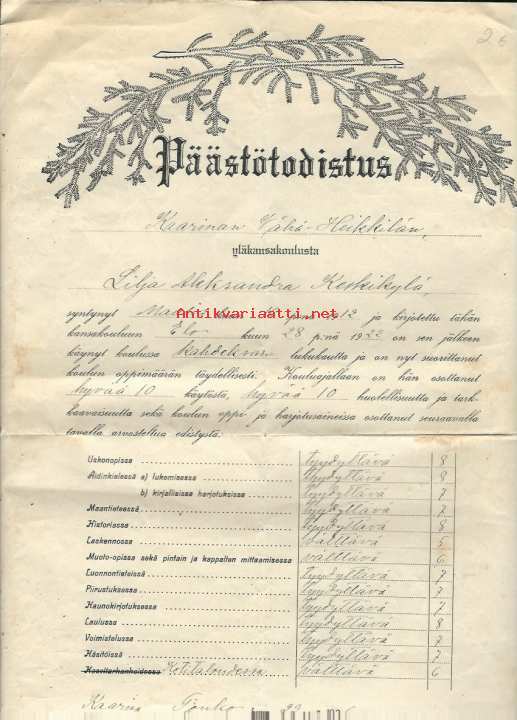 2 €
Päästötodistus
Kaarinan Vähä-Heikkilän,
yläkansakoulusta
Lilja Aleksandra Keskikylä,
Antikvariaatti.net
syntynyt kuun p:nä 1912 ja kirjotettu tähän
kansakouluun Elo kuun 28 p:nä 1922 on sen jälkeen
käynyt koulussa kahdeksan lukukautta ja on nyt suorittanut
koulun oppimäärän täydellisesti. Kouluajallaan on hän osottanut
hyvää 10 käytöstä, hyvää 10 huolellisuutta ja tark-
kaavaisuutta sekä koulun oppi- ja harjotusaineissa osottanut seuraavalla
tavalla arvosteltua edistystä.
Uskonopissa tyydyttävä 8
Äidinkielessä a) lukemisessa tyydyttävä 8
b) kirjallisissa harjotuksissa tyydyttävä 7
Maantieteessä tyydyttävä 7
Historiassa tyydyttävä 8
Laskennossa välttävä 5
Muoto-opissa sekä pintain ja kappalten mittaamisessa välttävä 6
Luonnontieteissä tyydyttävä 7
Piirustuksessa tyydyttävä 7
Kaunokirjotuksessa tyydyttävä 7
Laulussa tyydyttävä 8
Voimistelussa tyydyttävä 7
Käsitöissä tyydyttävä 7
Kasvitarhanhoidossa Kotitaloudessa välttävä 6
Kaarina Touko